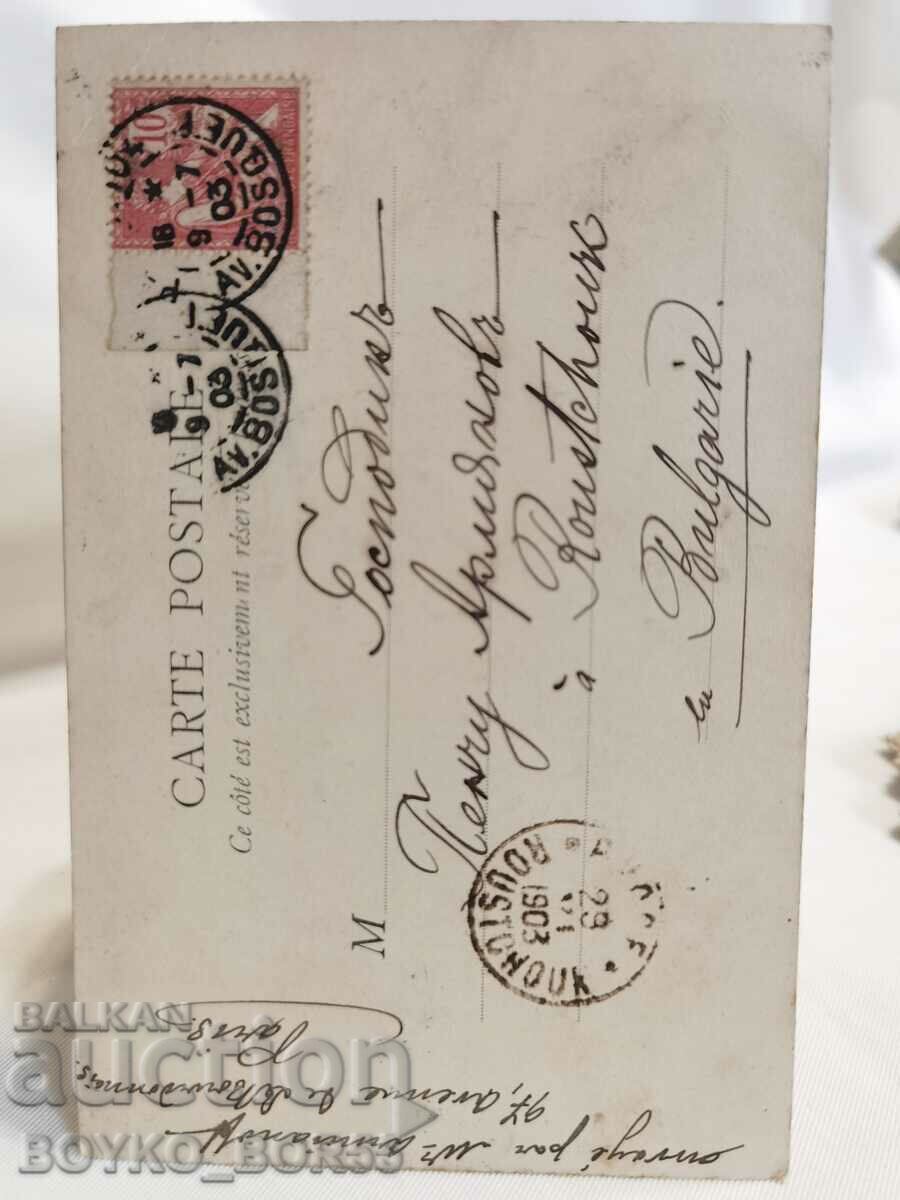 CARTE POSTALE
Ce côté est exclusivement réservé
10
AV. BOSQUET
9-7
03
AV. BOSQUET
9-7
03
M Господинъ
Пенчу
à Roustchouk
en Bulgarie.
ROUSTCHOUK
29 VI
1903
envoyé par Mr
97, avenue de la Bourdonnais.
Paris.
BALKAN
auction
BOYKO_BOR53